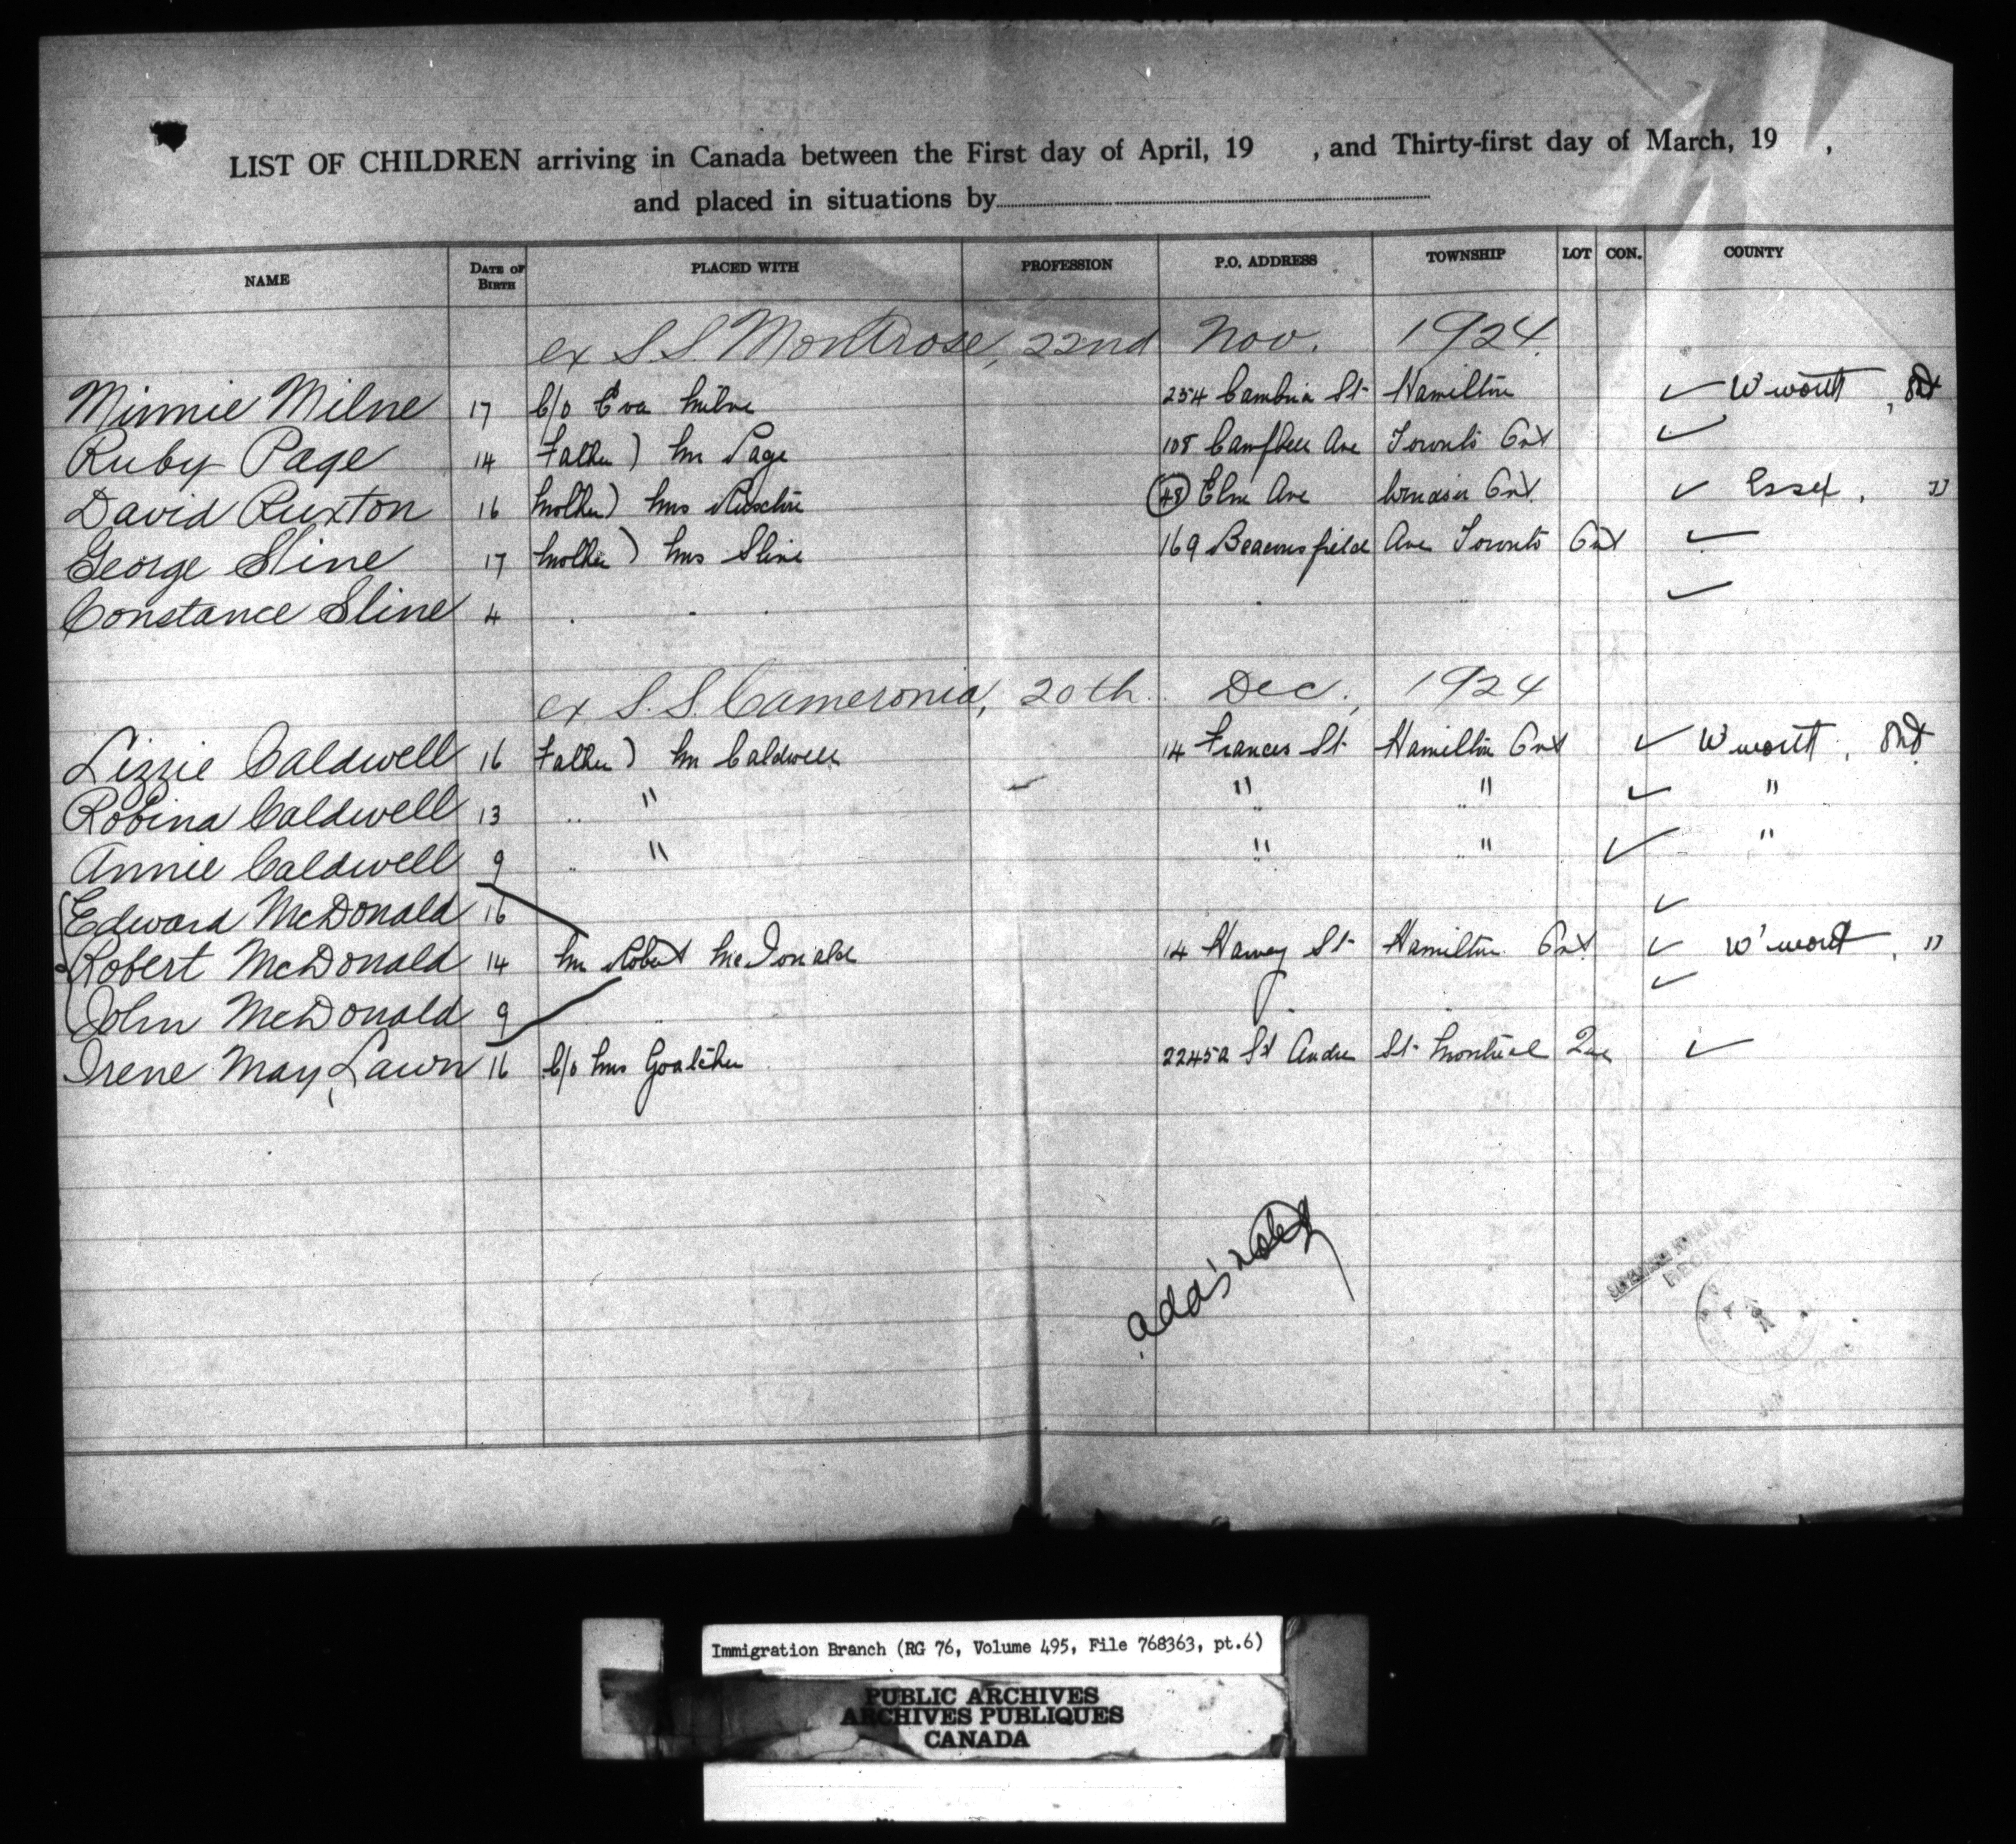 LIST OF CHILDREN arriving in Canada between the First day of April, 19 , and Thirty-first day of March, 19 ,
and placed in situations by
NAME DATE OF BIRTH PLACED WITH PROFESSION P.O. ADDRESS TOWNSHIP LOT CON. COUNTY
ex S.S. Montrose, 22nd Nov. 1924
Minnie Milne 17 C/o Eva Milne 254 Cambria St Hamilton ✓ W'worth, Ont
Ruby Page 14 Father) Mr Page 108 Campbell Ave Toronto Ont ✓
David Ruxton 16 Mother) Mrs 48 Elm Ave Windsor Ont ✓ Essex, "
George Sline 17 Mother) Mrs Sline 169 Beaconsfield Ave Toronto Ont ✓
Constance Sline 4 ✓
ex S.S. Cameronia, 20th Dec, 1924
Lizzie Caldwell 16 Father) Mr Caldwell 14 Frances St Hamilton Ont ✓ W'worth, Ont
Robina Caldwell 13 " " " ✓ "
Annie Caldwell 9 " " " ✓ "
Edward McDonald 16 ✓
Robert McDonald 14 Mr Robert McDonald 14 Harvey St Hamilton Ont ✓ W'worth, "
John McDonald 9 ✓
Irene May Lawn 16 C/o Mrs Goatcher 2245a St Andre St Montreal Que ✓
RECEIVED
Immigration Branch (RG 76, Volume 495, File 768363, pt.6)
PUBLIC ARCHIVES
ARCHIVES PUBLIQUES
CANADA